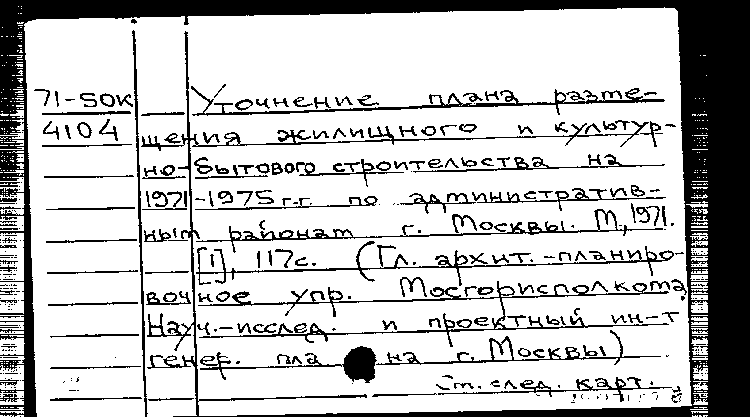 71-50К Уточнение плана разме-
4104 щения жилищного и культур-
но-бытового строительства на
1971-1975 г.г. по административ-
ным районам г. Москвы. М, 1971.
[1], 117с. (Гл. архит.-планиро-
вочное упр. Мосгорисполкома.
Науч.-исслед. и проектный ин-т
генер. плана г. Москвы)
См. след. карт.